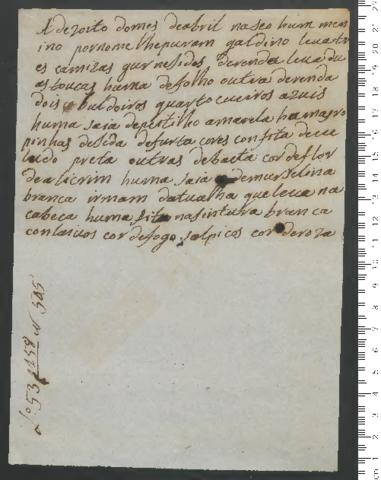 A dezoito domes deabril naseo hum men
ino pornome lhepuzam galdino leva tr
es camizas gurnesidas derenda leva du
as toucas huma defolho outra derenda
dois buldoiros quarto cueiros azuis
huma saia depetilho amarela humas ro
pinhas deseda defurta cores con fita deve
ludo preta outras debaeta cor deflor
dealicrim huma saia demurselina
branca irmam datualha queleva na
cabeca huma fita nasintura branca
con laivos cor defogo salpicos cor deroza
1159 N 505